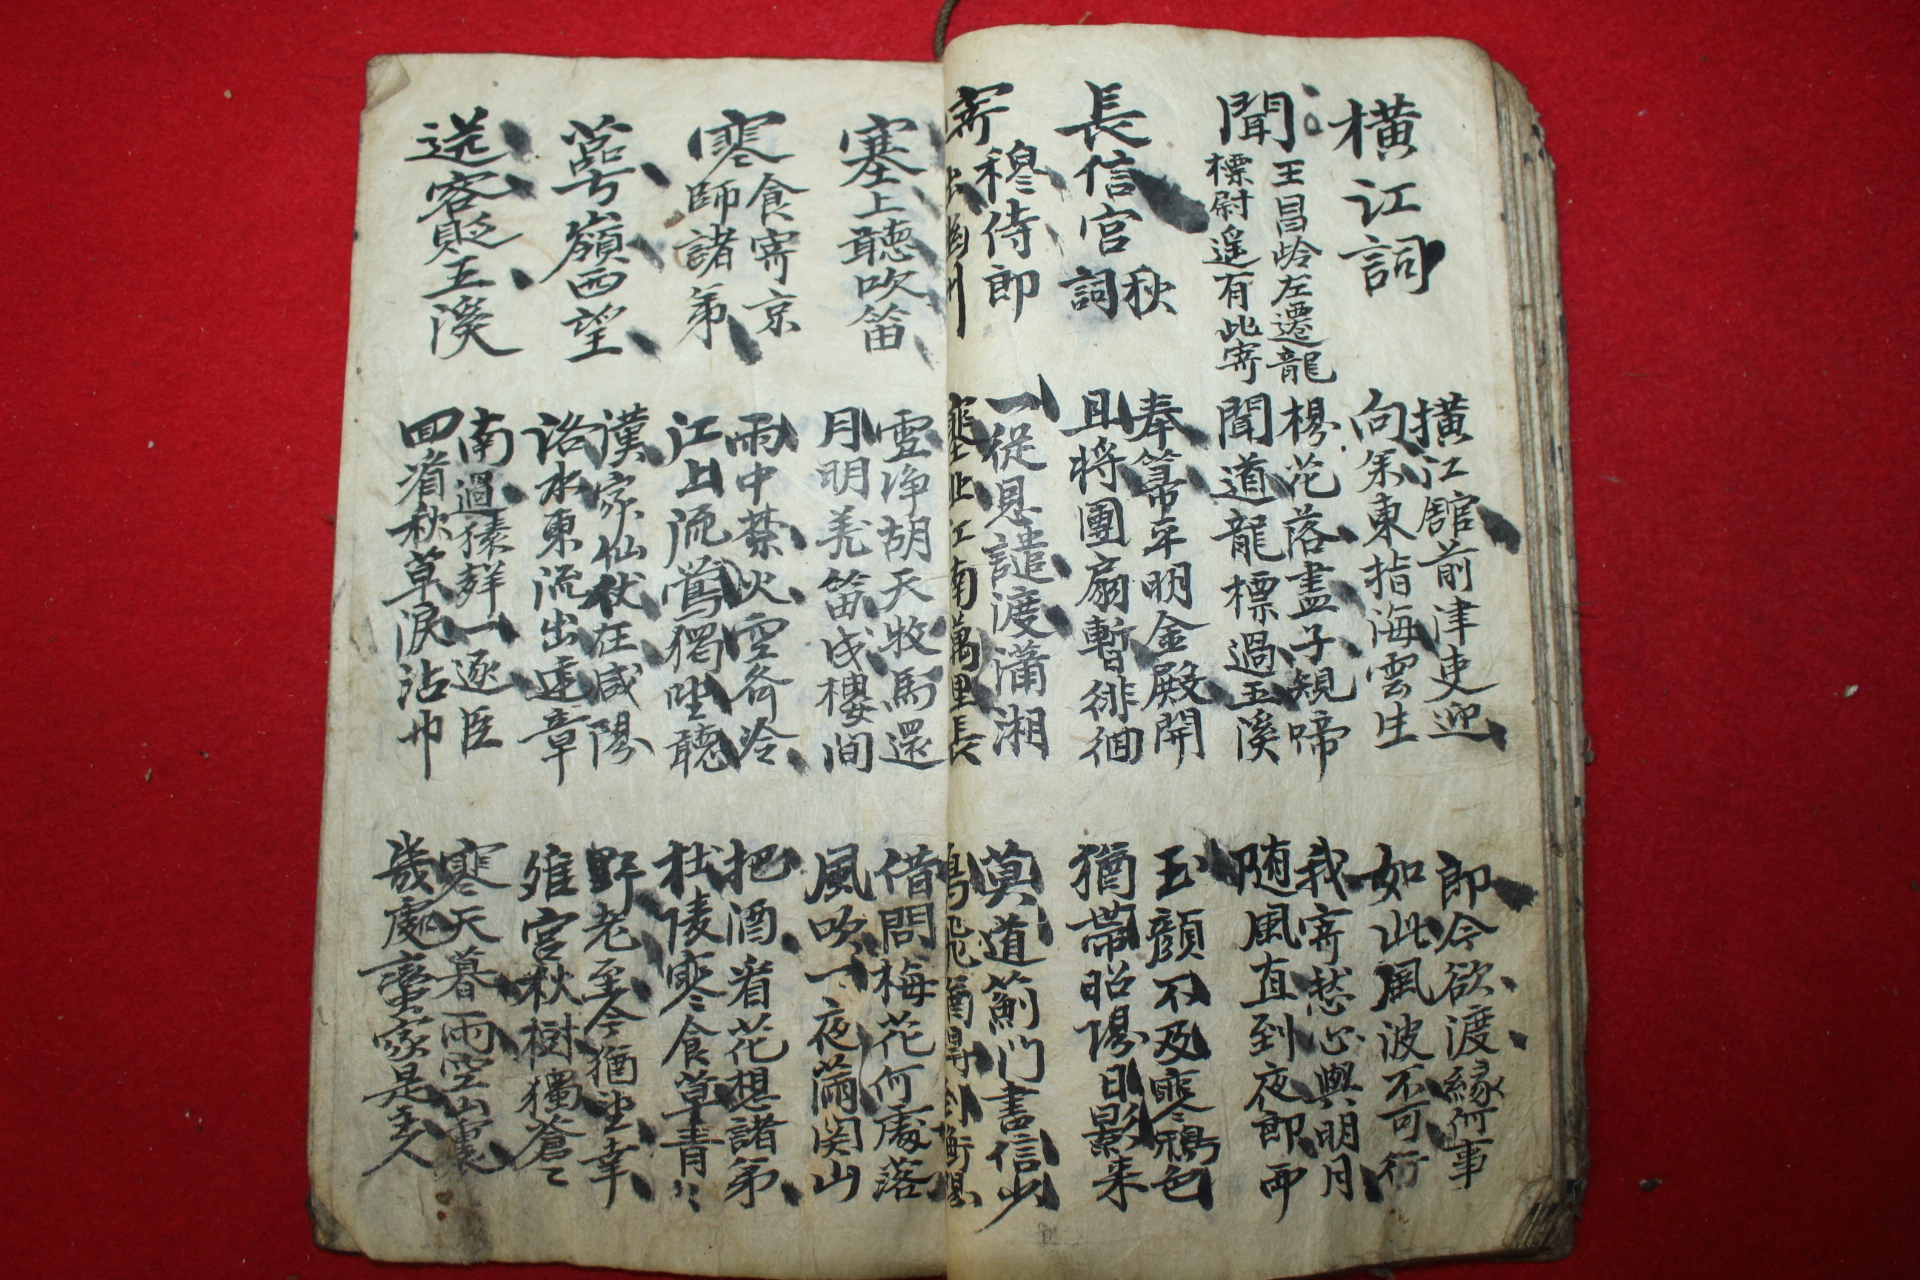 橫江詞
橫江館前津吏迎
向余東指海雲生
郎今欲渡緣何事
如此風波不可行
聞王昌岭左遷龍
標尉遥有此寄
楊花落盡子規啼
聞道龍標過五溪
我寄愁心與明月
随風直到夜郎西
長信宮秋
詞
奉箒平明金殿開
且將團扇暫徘徊
玉顔不及寒鴉色
猶帶昭陽日影來
寄穆侍郎
出幽州
一從恩譴渡瀟湘
塞北江南萬里長
莫道薊門書信少
鴈飛猶得到衡陽
塞上聽吹笛
雪淨胡天牧馬還
月明羌笛戍樓間
借問梅花何處落
風吹一夜滿関山
寒食寄京
師諸弟
雨中禁火空齋冷
江上流鶯獨坐聽
把酒看花想諸弟
杜陵寒食草青々
萼嶺西望
漢家仙仗在咸陽
洛水東流出建章
野老至今猶望幸
離宮秋樹獨蒼々
送客貶五溪
南過猿群一逐臣
回看秋草淚沾巾
寒天暮雨空山裏
幾處蠻家是主人